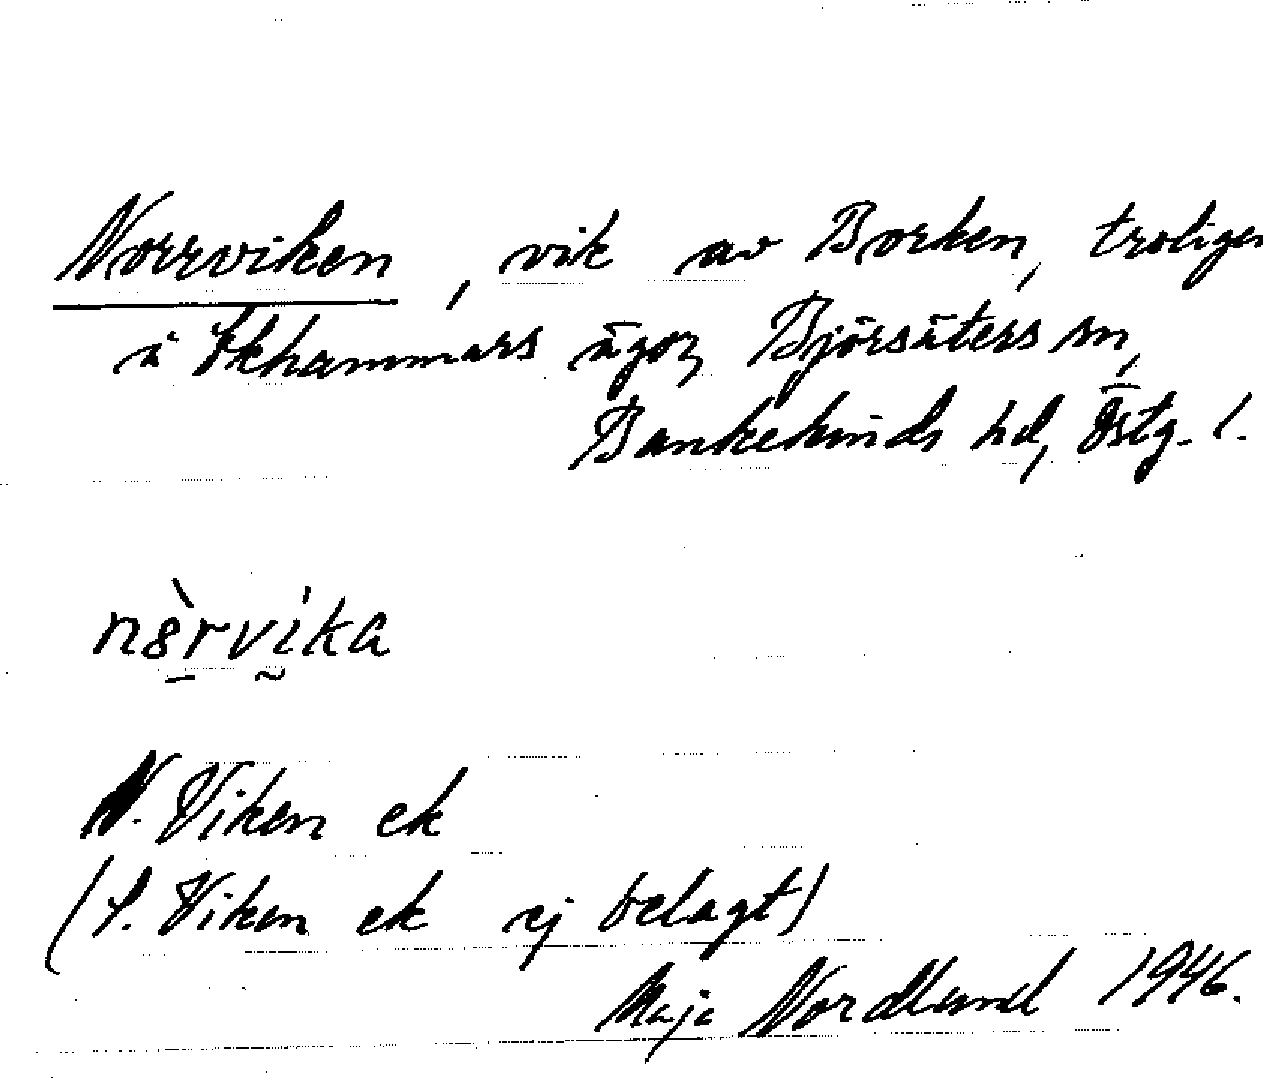 Norrviken, vik av Borken, troligen
å Ekhammars ägor, Björsäters sn,
Bankekinds hd, Östg. l.
nȯ̀rvika
N. Viken ek
(S. Viken ek ej belagt)
Maja Nordlund 1946.